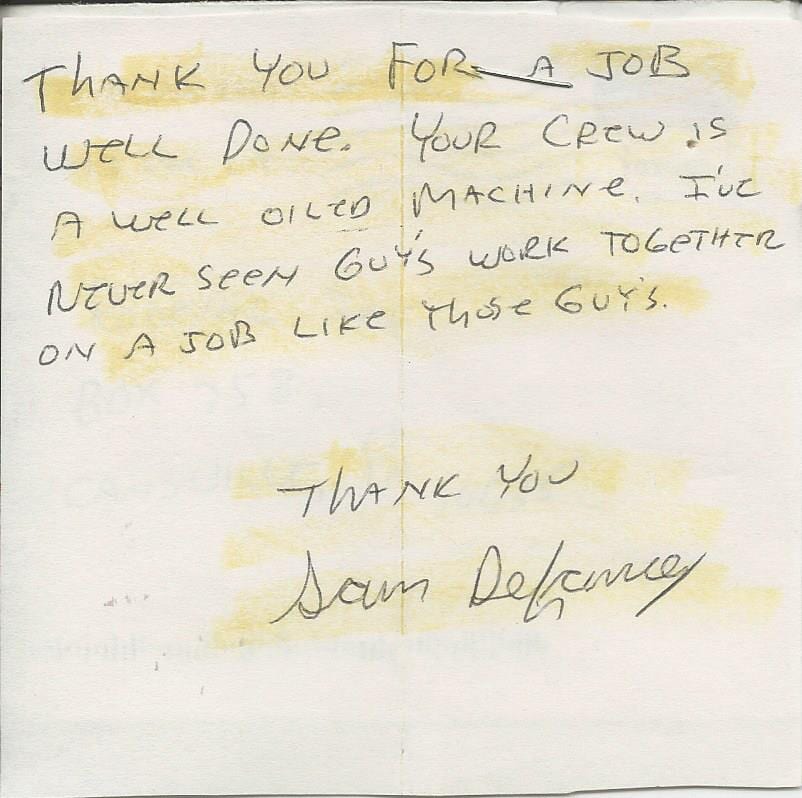 THANK YOU FOR A JOB
WELL DONE. YOUR CREW IS
A WELL OILED MACHINE. I'VE
NEVER SEEN GUY'S WORK TOGETHER
ON A JOB LIKE THOSE GUY'S.
THANK YOU
Sam